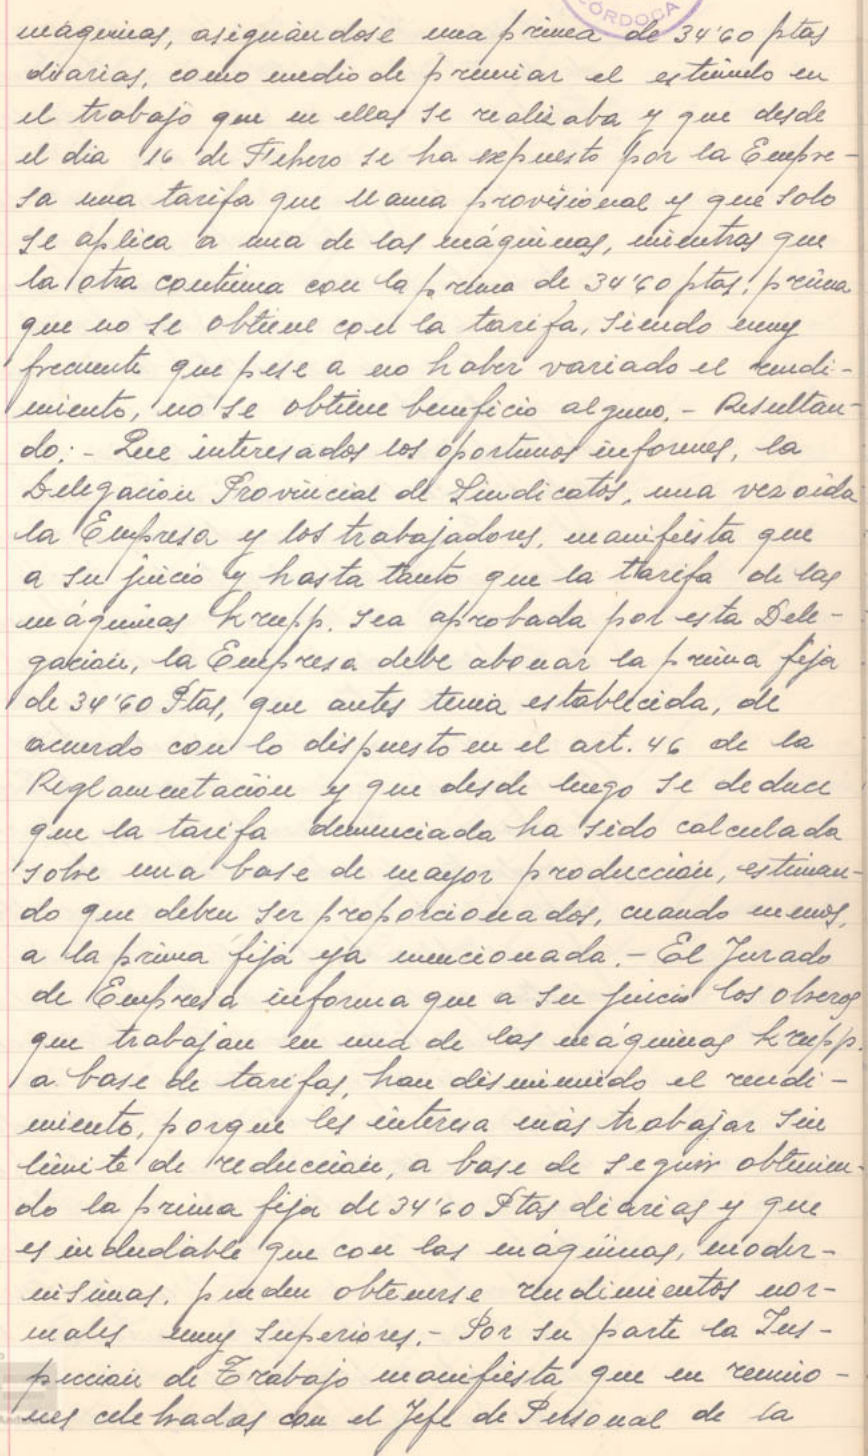 CÓRDOBA
máquinas, asignándose una prima de 34'60 ptas
diarias, como medio de premiar el estímulo en
el trabajo que en ellas se realizaba y que desde
el dia 16 de Febrero se ha expuesto por la Empre-
sa una tarifa que llama provisional y que solo
se aplica a una de las máquinas, mientras que
la otra continua con la prima de 34'60 ptas, prima
que no se obtiene con la tarifa, siendo muy
frecuente que pese a no haber variado el rendi-
miento, no se obtiene beneficio alguno. - Resultan-
do: - Que interesados los oportunos informes, la
Delegación Provincial de Sindicatos, una vez oida
la Empresa y los trabajadores, manifiesta que
a su juicio y hasta tanto que la tarifa de las
máquinas Krupp. sea aprobada por esta Dele-
gación, la Empresa debe abonar la prima fija
de 34'60 Ptas, que antes tenia establecida, de
acuerdo con lo dispuesto en el art. 46 de la
Reglamentación y que desde luego se deduce
que la tarifa denunciada ha sido calculada
sobre una base de mayor producción, estiman-
do que deben ser proporcionados, cuando menos,
a la prima fija ya mencionada. - El Jurado
de Empresa informa que a su juicio los obreros
que trabajan en una de las máquinas Krupp.
a base de tarifas, han disminuido el rendi-
miento, porque les interesa más trabajar sin
limite de reducción, a base de seguir obtenien-
do la prima fija de 34'60 Ptas diarias y que
es indudable que con las máquinas, moder-
nisimas, pueden obtenerse rendimientos nor-
males muy superiores. - Por su parte la Ins-
pección de Trabajo manifiesta que en reunio-
nes celebradas con el Jefe de Personal de la